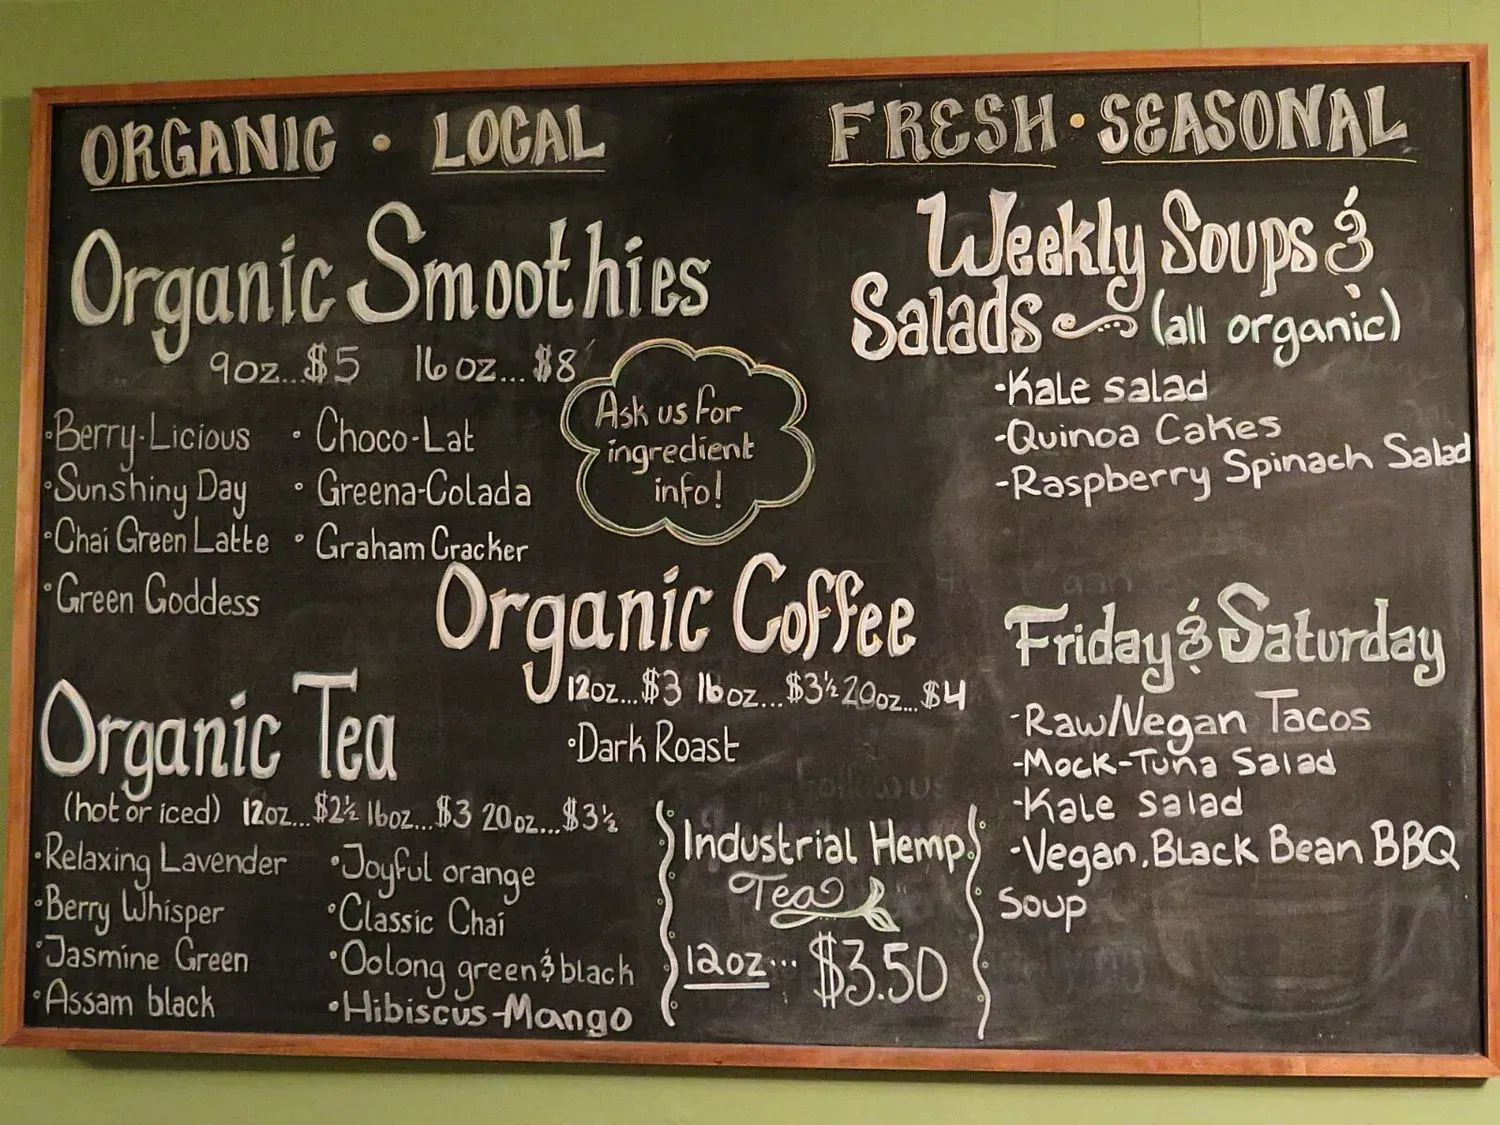 ORGANIC • LOCAL
Organic Smoothies
9oz...$5 16oz...$8
•Berry-Licious
•Sunshiny Day
•Chai Green Latte
•Green Goddess
• Choco-Lat
• Greena-Colada
• Graham Cracker
Ask us for
ingredient
info!
Organic Coffee
12oz...$3 16oz...$3½ 20oz...$4
•Dark Roast
Organic Tea
(hot or iced) 12oz...$2½ 16oz...$3 20oz...$3½
•Relaxing Lavender
•Berry Whisper
•Jasmine Green
•Assam black
•Joyful orange
•Classic Chai
•Oolong green & black
•Hibiscus-Mango
Industrial Hemp
Tea
12oz... $3.50
FRESH • SEASONAL
Weekly Soups &
Salads (all organic)
-Kale salad
-Quinoa Cakes
-Raspberry Spinach Salad
Friday & Saturday
-Raw/Vegan Tacos
-Mock-Tuna Salad
-Kale Salad
-Vegan, Black Bean BBQ
Soup